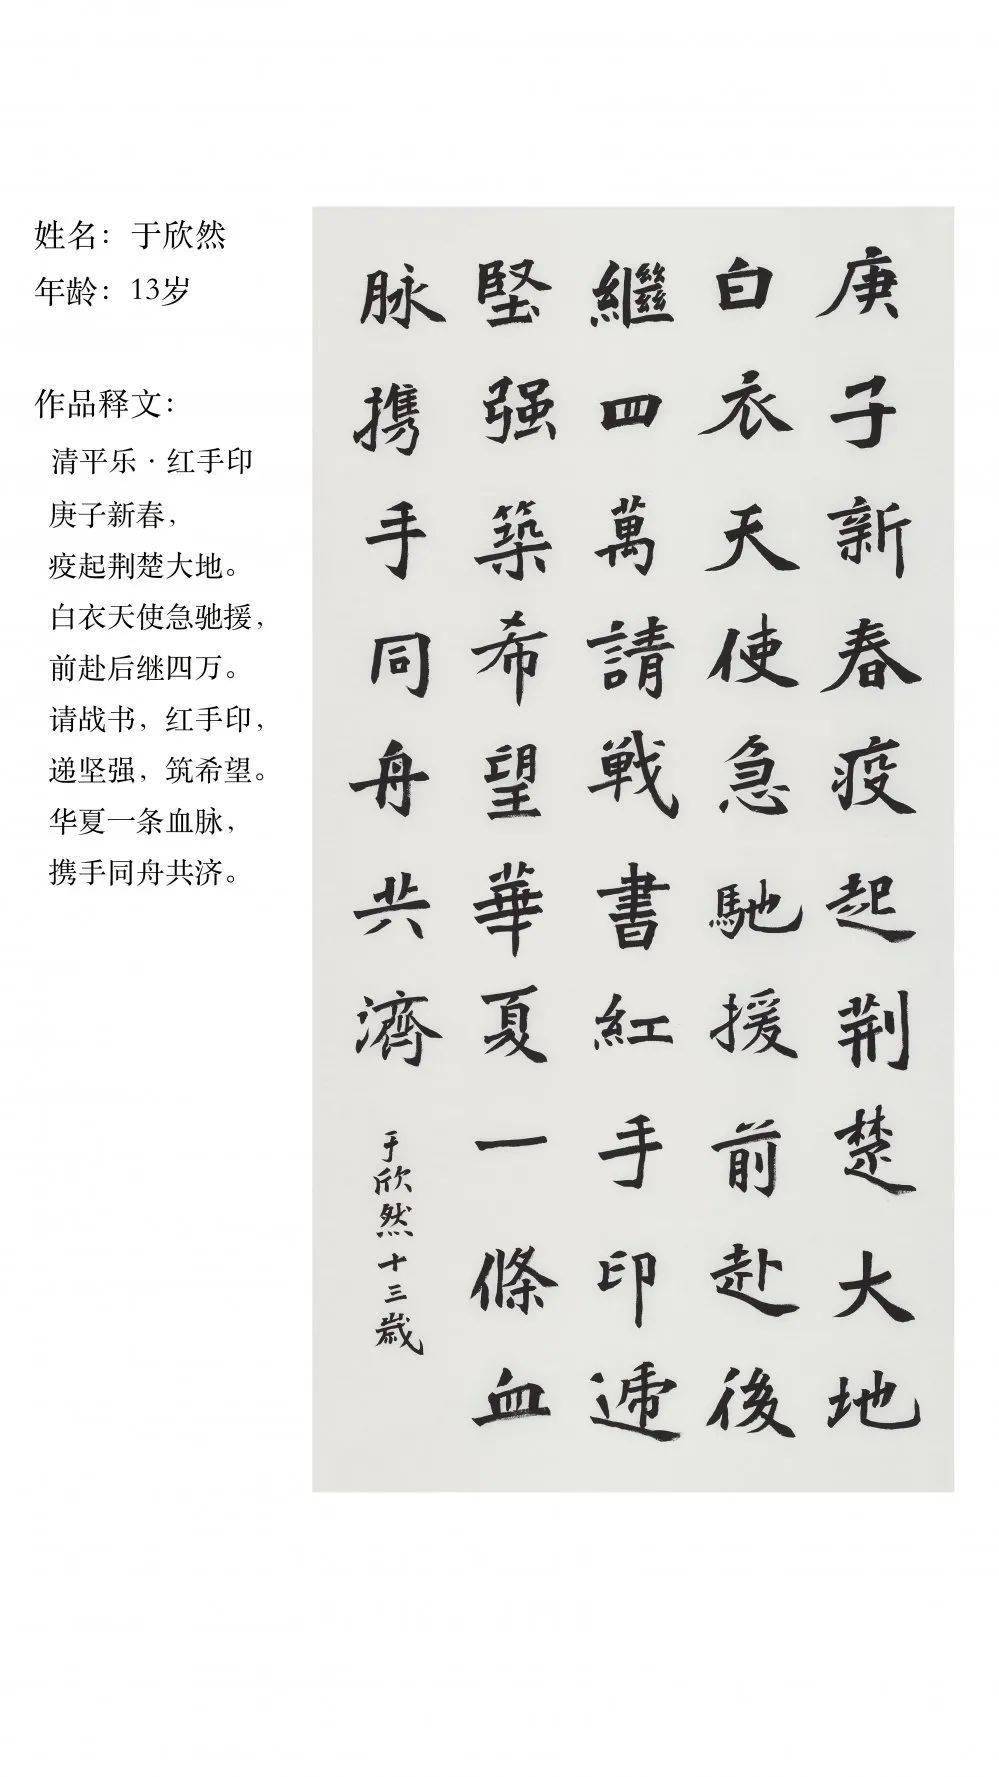 姓名：于欣然
年龄：13岁
作品释文：
清平乐·红手印
庚子新春，
疫起荆楚大地。
白衣天使急驰援，
前赴后继四万。
请战书，红手印，
递坚强，筑希望。
华夏一条血脉，
携手同舟共济。
庚子新春疫起荆楚大地
白衣天使急馳援前赴後
繼四萬請戰書紅手印遞
堅强築希望華夏一條血
脉携手同舟共濟
于欣然十三歲